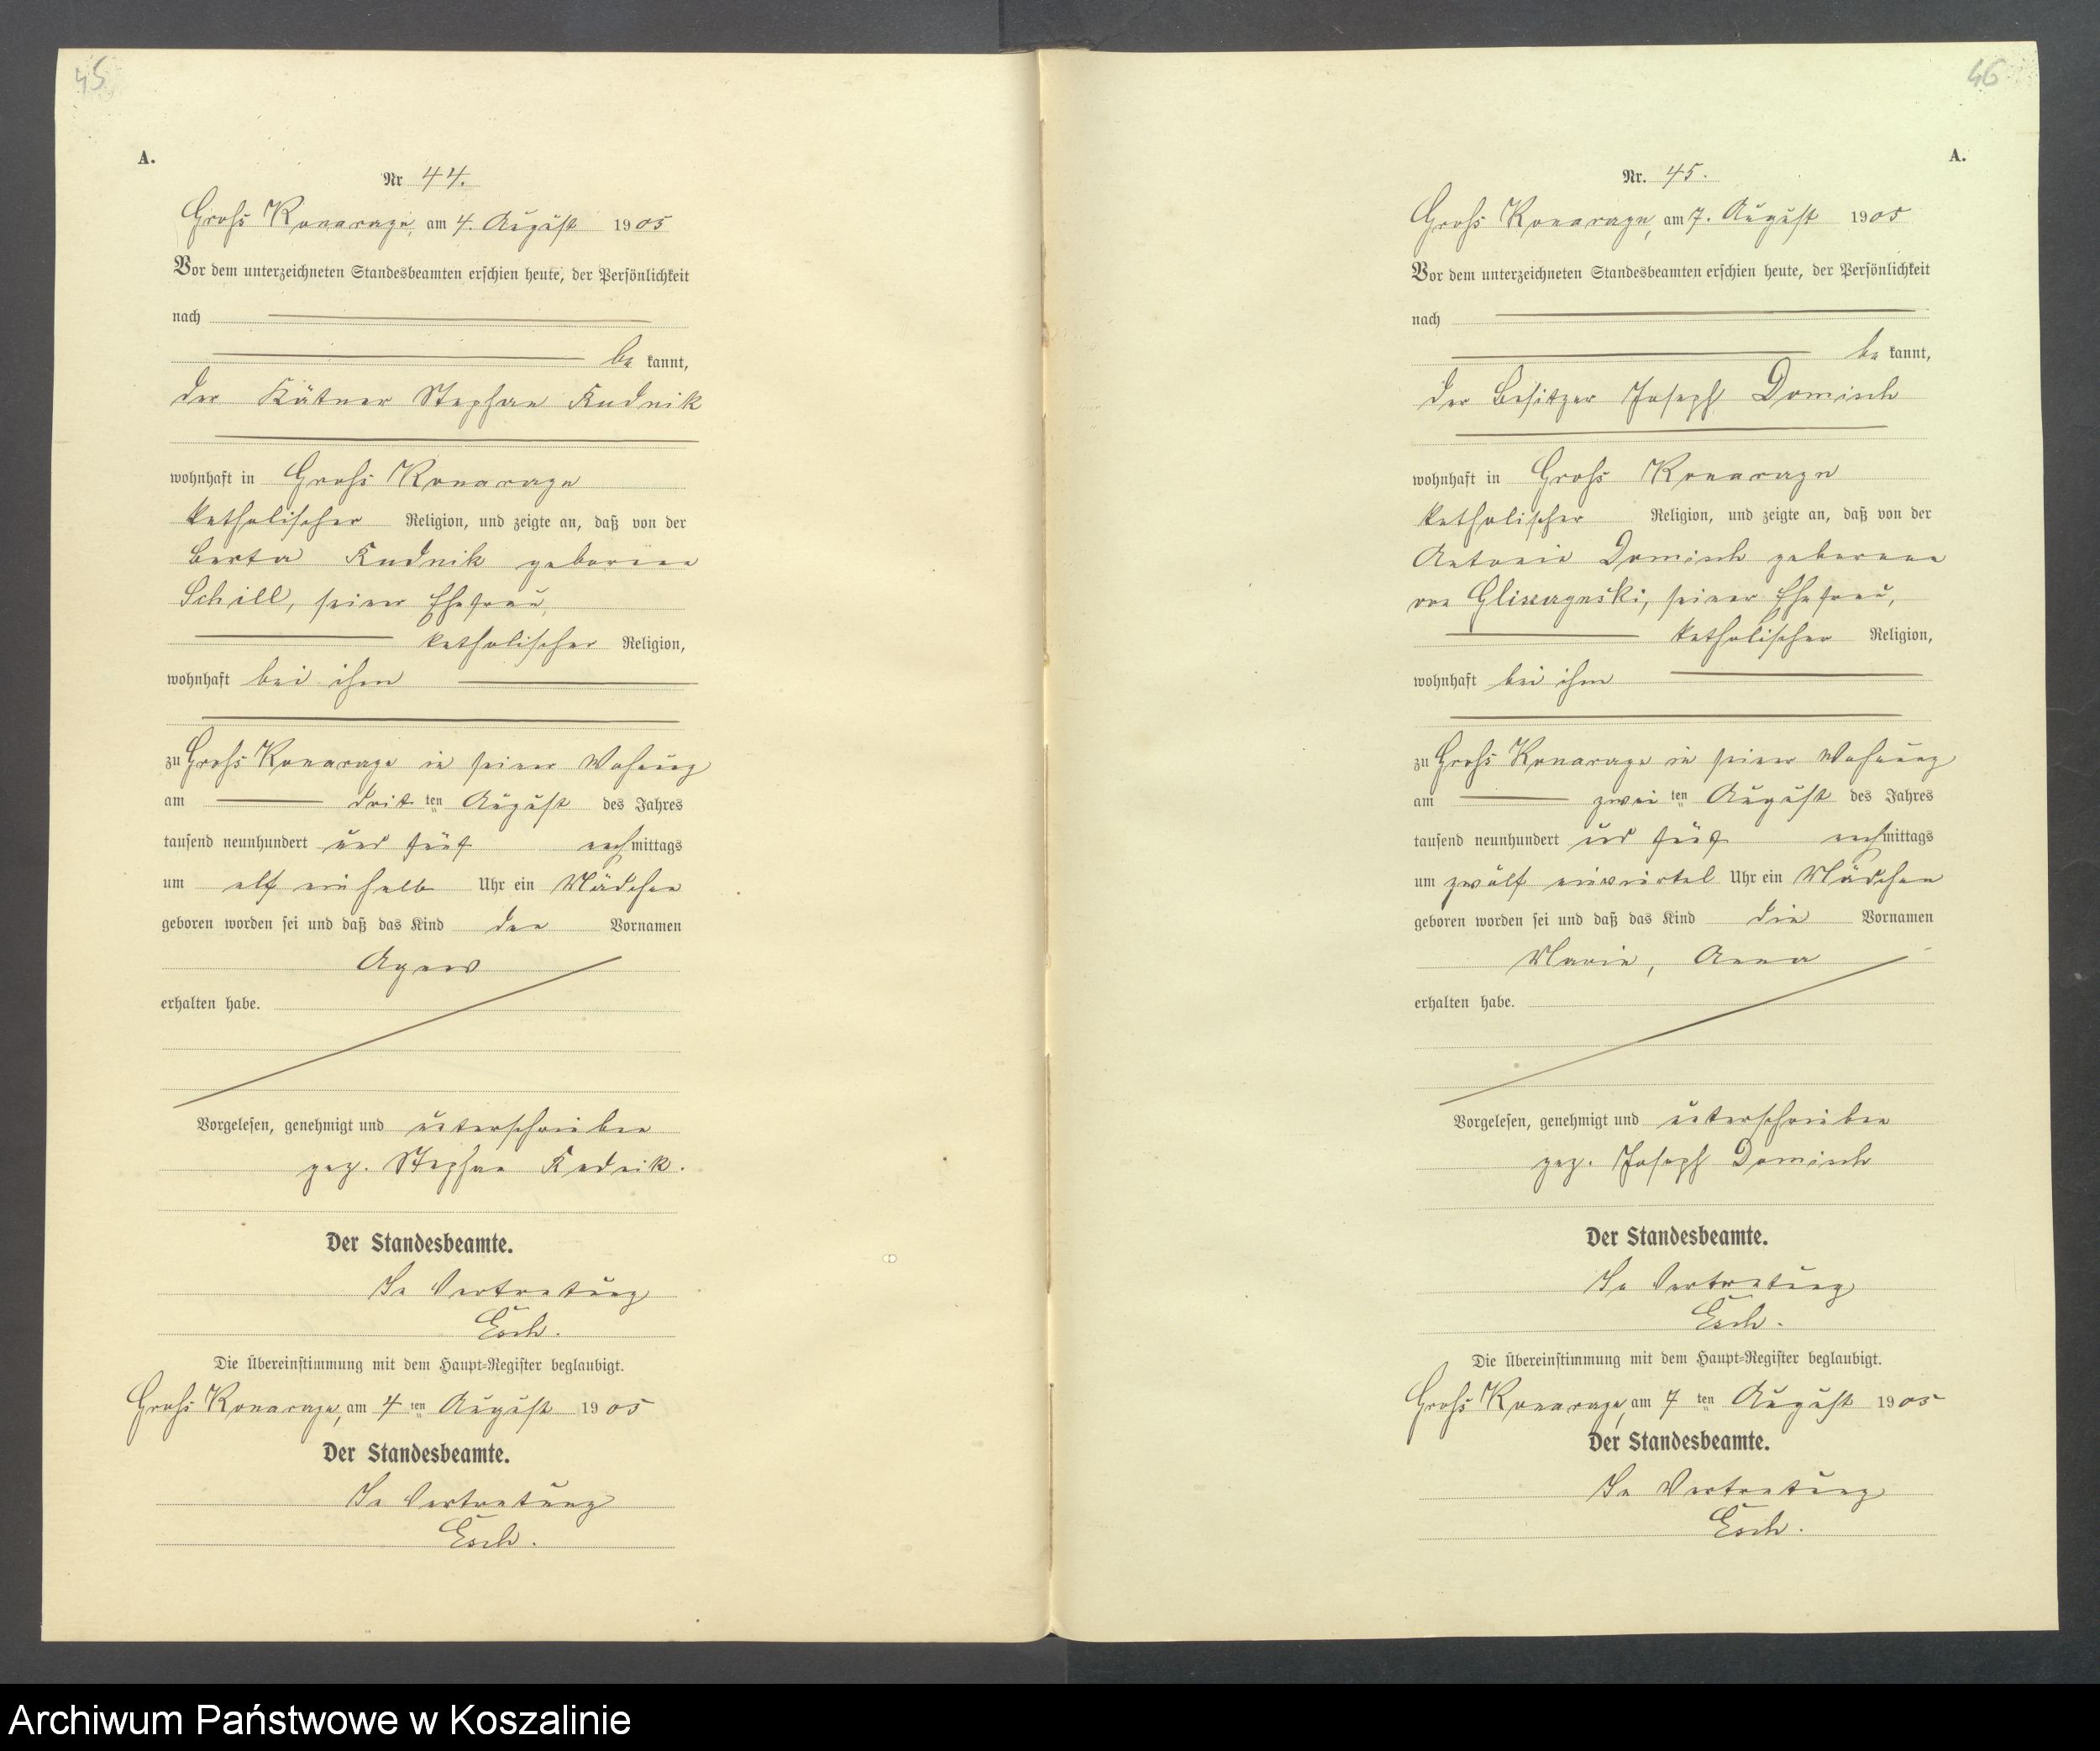 45
A.
Nr 44.
Groß Konarzyn, am 4. August 1905
Vor dem unterzeichneten Standesbeamten erschien heute, der Persönlichkeit
nach
be kannt,
der Kätner Stephan Rudnik
wohnhaft in Groß Konarzyn
katholischer Religion, und zeigte an, daß von der
Berta Rudnik geborene
Schill, seiner Ehefrau,
katholischer Religion,
wohnhaft bei ihm
zu Groß Konarzyn in seiner Wohnung
am drit ten August des Jahres
tausend neunhundert und fünf nachmittags
um elf ein halb Uhr ein Mädchen
geboren worden sei und daß das Kind den Vornamen
Agnes
erhalten habe.
Vorgelesen, genehmigt und unterschrieben
gez. Stephan Rudnik.
Der Standesbeamte.
In Vertretung
Esch.
Die Übereinstimmung mit dem Haupt-Register beglaubigt.
Groß Konarzyn, am 4 ten August 1905
Der Standesbeamte.
In Vertretung
Esch.
46
A.
Nr. 45.
Groß Konarzyn, am 7. August 1905
Vor dem unterzeichneten Standesbeamten erschien heute, der Persönlichkeit
nach
be kannt,
der Besitzer Joseph Domisch
wohnhaft in Groß Konarzyn
katholischer Religion, und zeigte an, daß von der
Antonie Domisch geborene
von seiner Ehefrau,
katholischer Religion,
wohnhaft bei ihm
zu Groß Konarzyn in seiner Wohnung
am zwei ten August des Jahres
tausend neunhundert und fünf nachmittags
um zwölf einviertel Uhr ein Mädchen
geboren worden sei und daß das Kind die Vornamen
Marie, Anna
erhalten habe.
Vorgelesen, genehmigt und unterschrieben
gez. Joseph Domisch
Der Standesbeamte.
In Vertretung
Esch.
Die Übereinstimmung mit dem Haupt-Register beglaubigt.
Groß Konarzyn, am 7 ten August 1905
Der Standesbeamte.
In Vertretung
Esch.
Archiwum Państwowe w Koszalinie